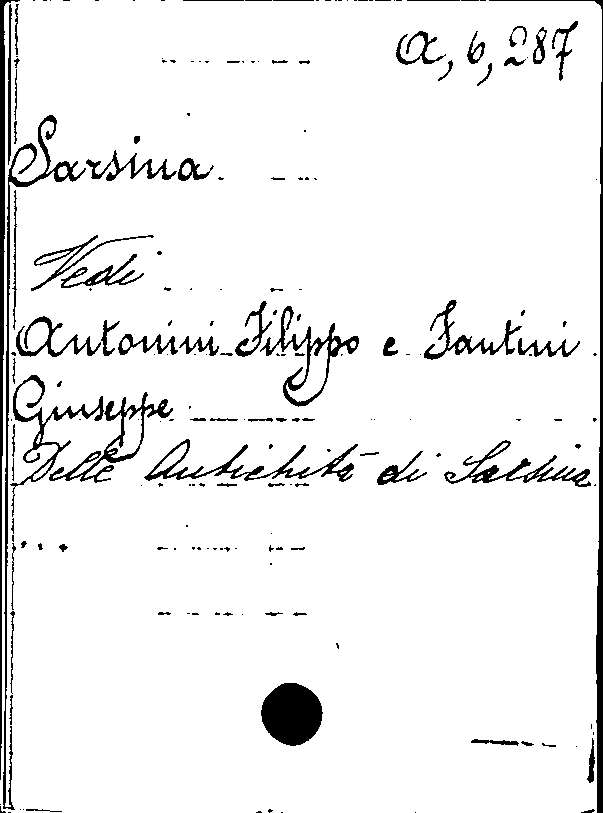 A, 6, 287
Sarsina
Vedi
Antonini Filippo e Fantini
Giuseppe
Delle Antichità di Sarsina
...